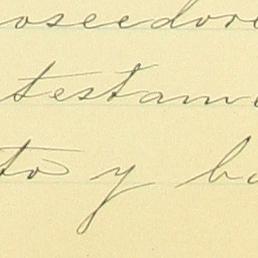 oseedore
testame
to y ba